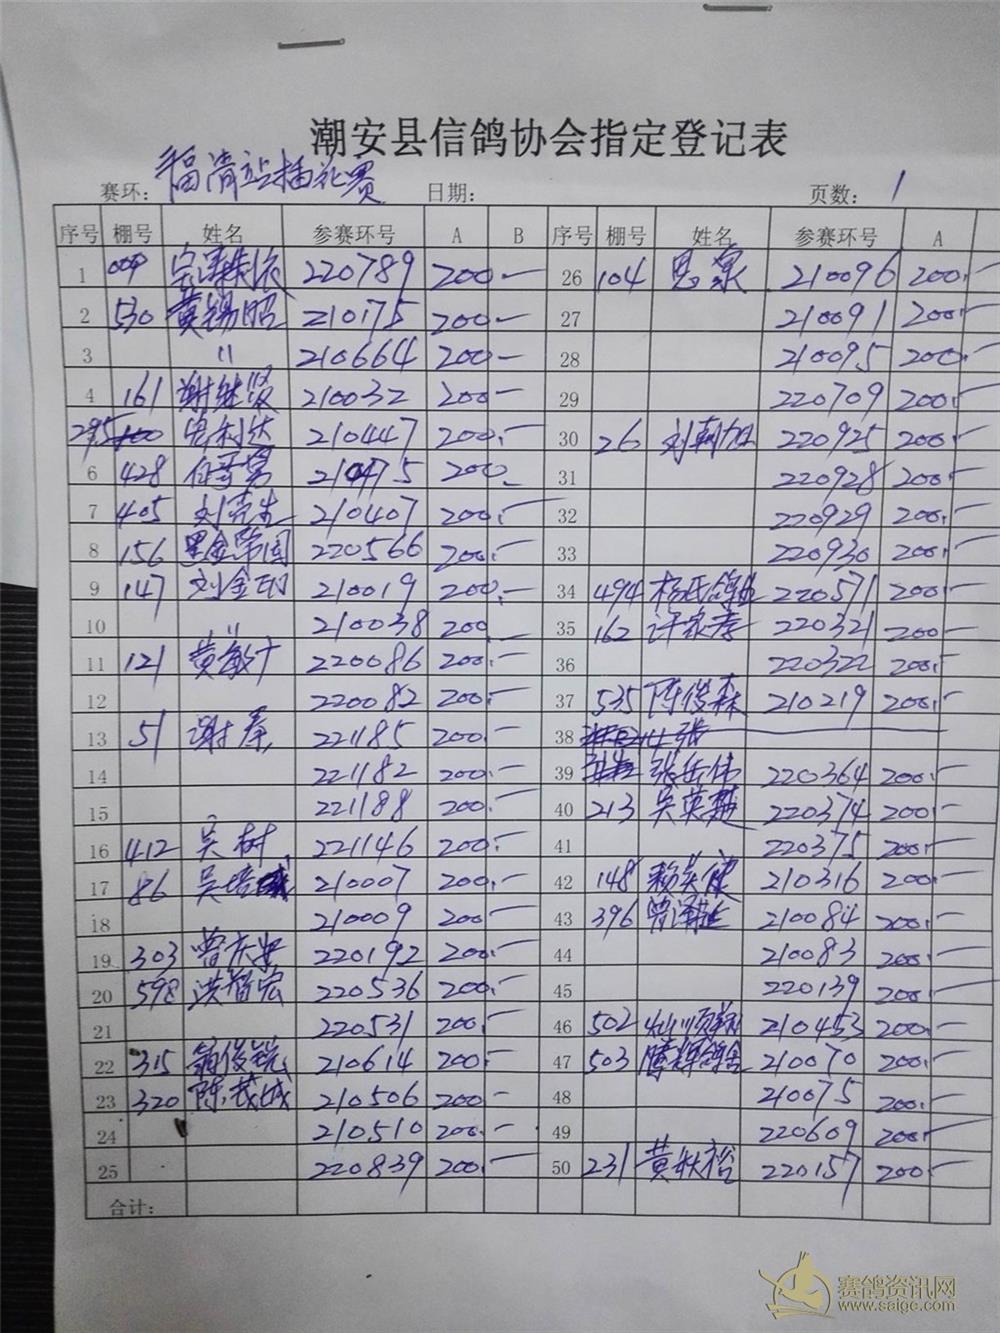 潮安县信鸽协会指定登记表
赛环：福清站插花赛 日期： 页数：1
序号 棚号 姓名 参赛环号 A B 序号 棚号 姓名 参赛环号 A
1 220789 200.— 26 104 210096 200.—
2 530 黄锡昭 210175 200.— 27 210091 200.—
3 〃 210664 200— 28 210095 200.—
4 161 谢继贤 210032 200— 29 220709 200.—
295 210447 200.— 30 26 刘朝加 220925 200.—
6 428 210475 200— 31 220928 200.—
7 405 210407 200.— 32 220929 200.—
8 156 220566 200.— 33 220930 200.—
9 147 刘金印 210019 200.— 34 494 杨氏鸽业 220571 200.—
10 〃 210038 200 35 162 220321 200—
11 121 220086 200.— 36 220322 200.—
12 220082 200.— 37 535 陈俊森 210219 200.—
13 51 221185 200.— 38
14 221182 200.— 39 张岳伟 220364 200.—
15 221188 200.— 40 213 吴英楚 220374 200.—
16 412 吴树 221146 200.— 41 220375 200.—
17 86 210007 200.— 42 148 210316 200.—
18 210009 200.— 43 396 210084 200.—
19 303 220192 200.— 44 210083 200.—
20 598 洪智宏 220536 200.— 45 220139 200.—
21 220531 200.— 46 502 210453 200.—
22 315 210614 200.— 47 503 腾辉鸽舍 210070 200.—
23 320 陈茂城 210506 200— 48 210075 200.—
24 210510 200.— 49 220609 200.—
25 220839 200.— 50 231 黄秋裕 220157 200.—
合计：
赛鸽资讯网
www.saige.com